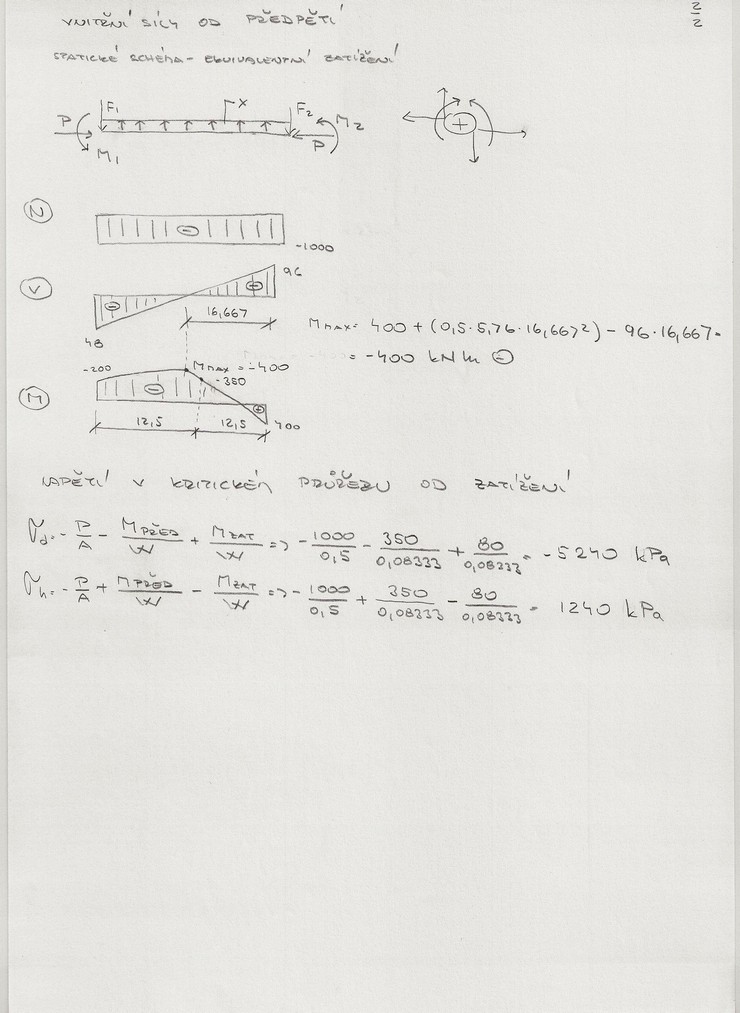 2/2
VNITŘNÍ SÍLY OD PŘEDPĚTÍ
STATICKÉ SCHÉMA - EKVIVALENTNÍ ZATÍŽENÍ
P F1 X F2 M2
M1 P +
N - -1000
V - - 96
16,667
48
Mmax= 400 + (0,5·5,76·16,667²) - 96·16,667=
= -400 kNm ⊖
-200 Mmax = -400
-350
M - + 400
12,5 12,5
NAPĚTÍ V KRITICKÉM PRŮŘEZU OD ZATÍŽENÍ
σd = - P/A - MPŘED/W + MZAT/W => - 1000/0,5 - 350/0,08333 + 80/0,08333 = -5240 kPa
σh = - P/A + MPŘED/W - MZAT/W => - 1000/0,5 + 350/0,08333 - 80/0,08333 = 1240 kPa